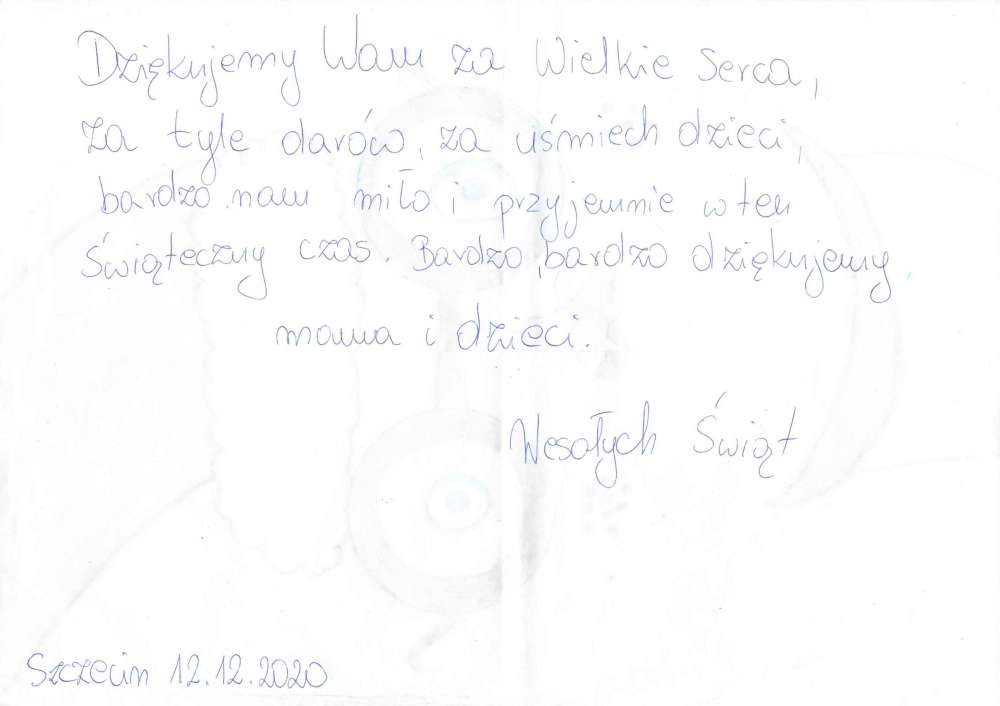 Dziękujemy Wam za Wielkie Serca,
za tyle darów, za uśmiech dzieci,
bardzo nam miło i przyjemnie w ten
Świąteczny czas. Bardzo, bardzo dziękujemy
mama i dzieci.
Wesołych Świąt
Szczecin 12.12.2020